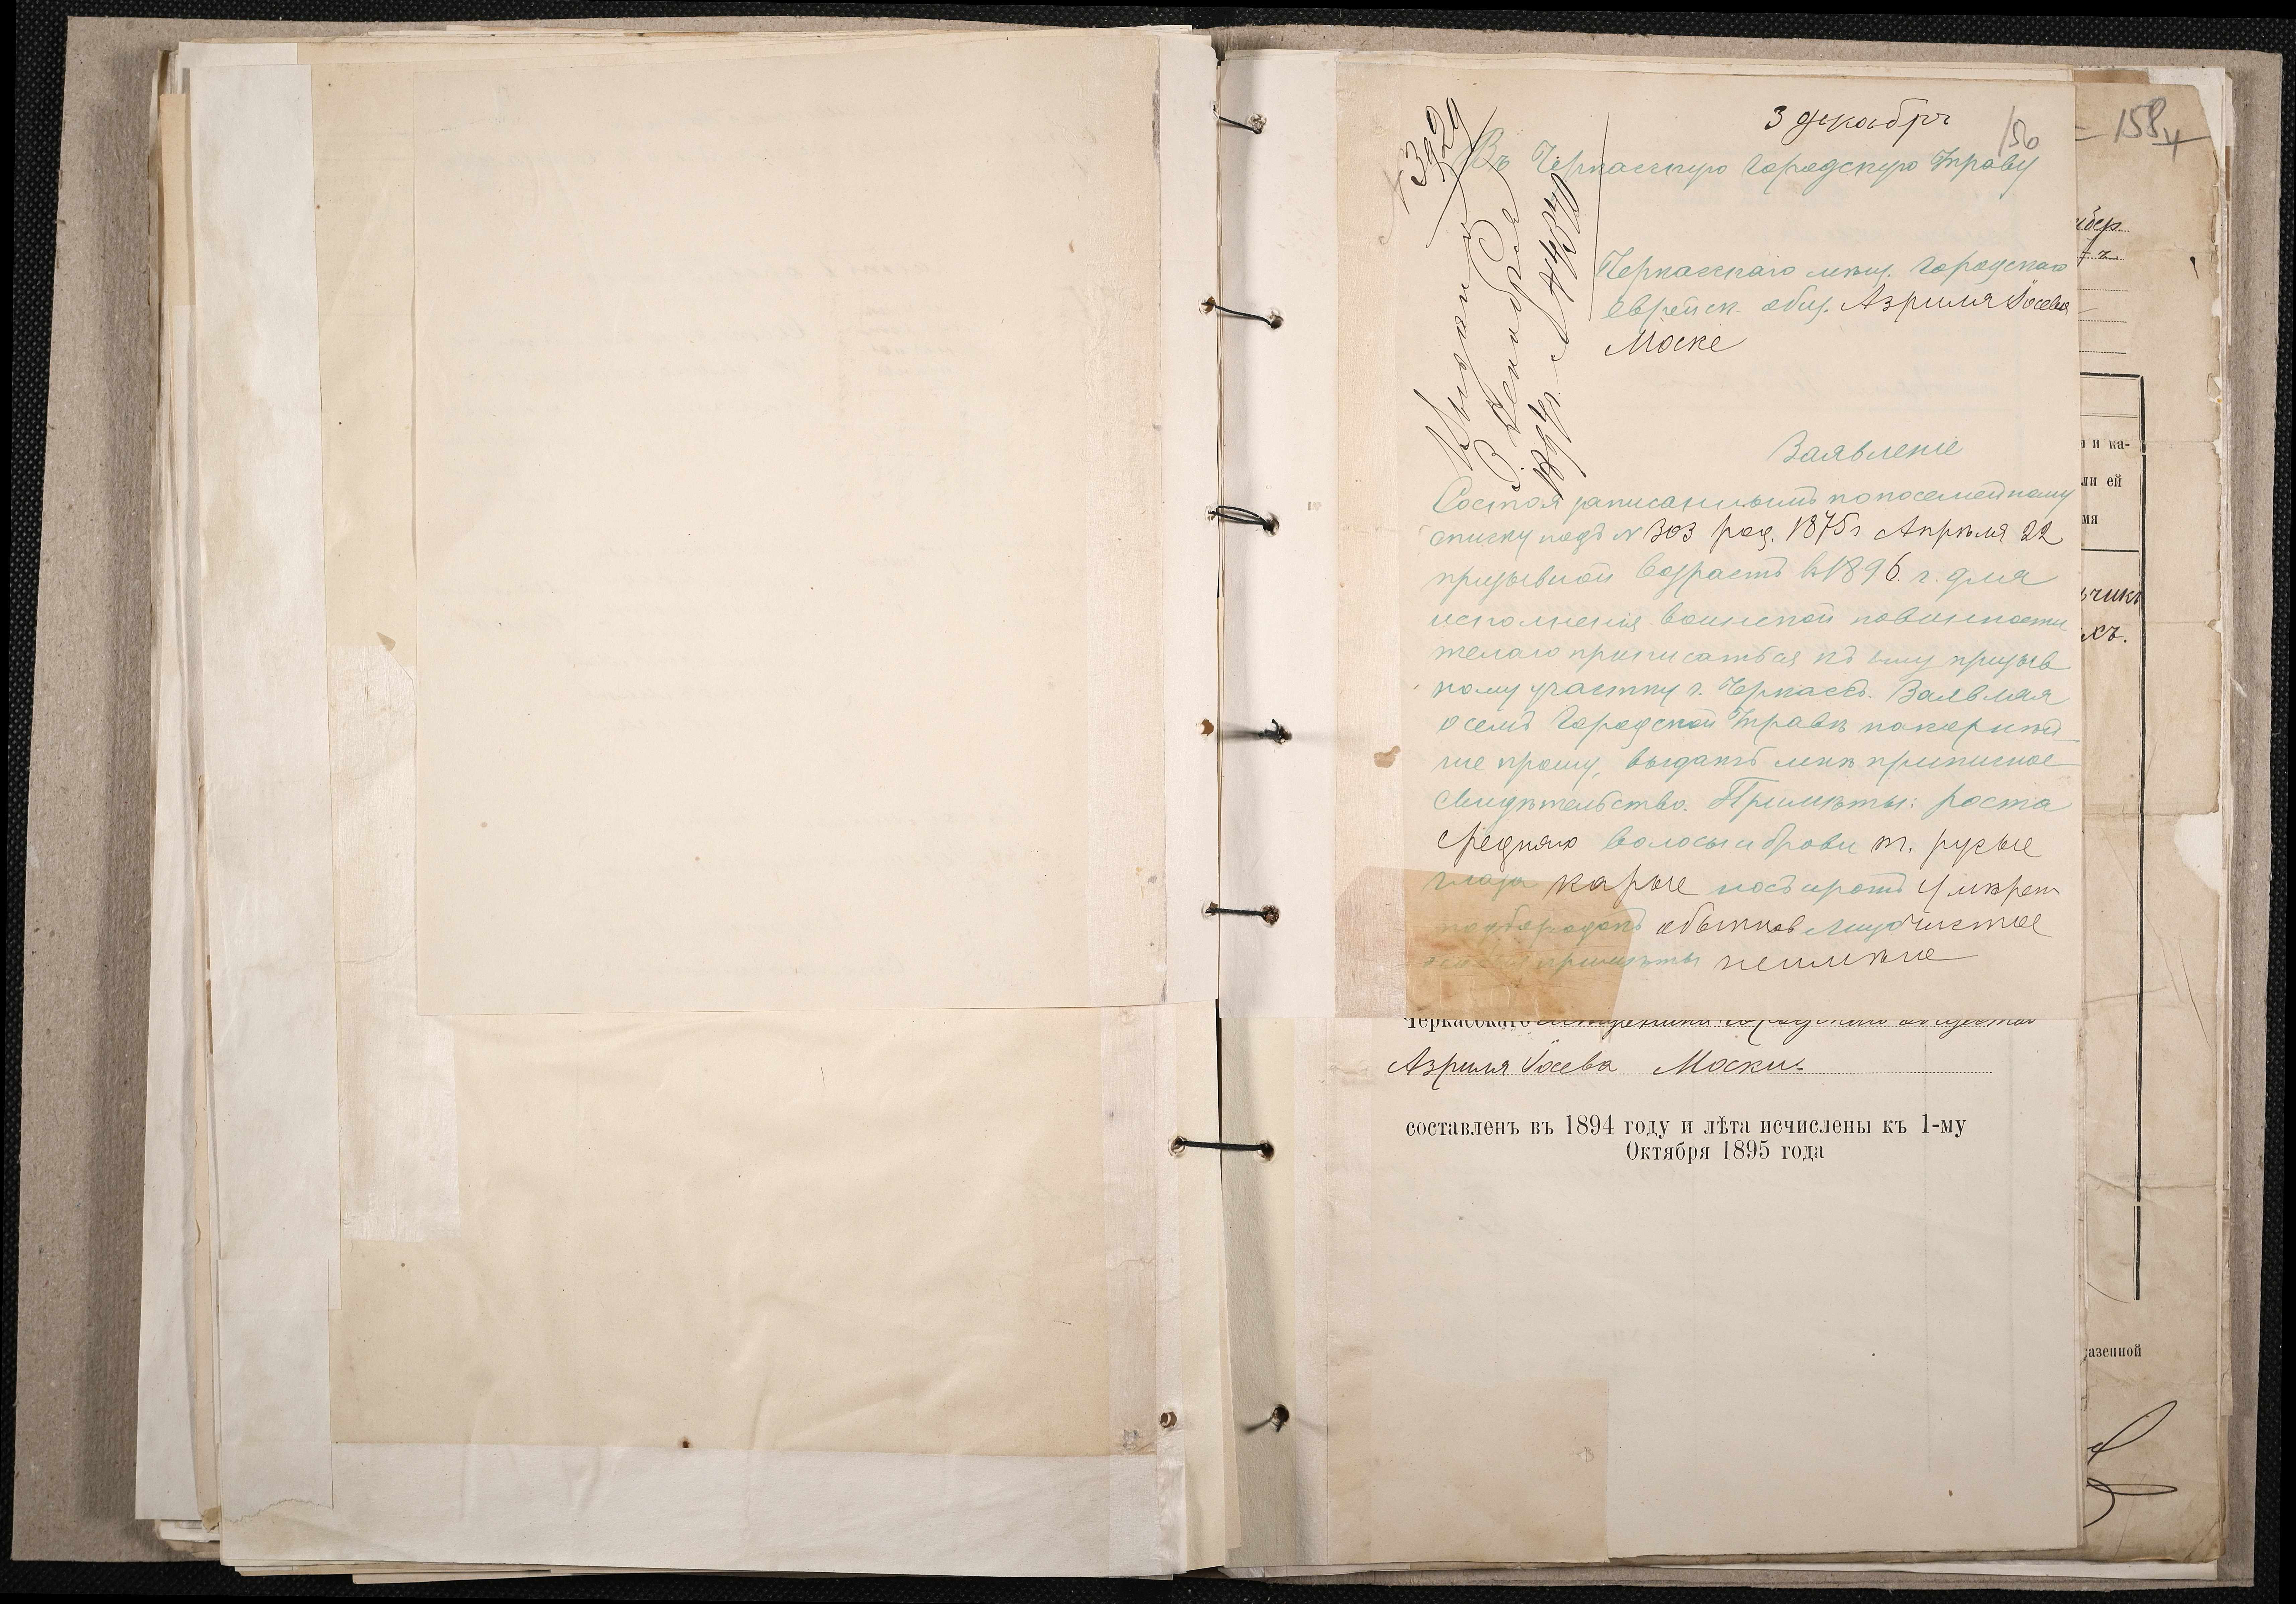 3 декабря
156
3929
Въ Черкасскую Городскую Управу
Черкасскаго мѣщ. Городскаго
еврейск. общ. Азриля Іосева
Моске
3 Декабря
1894 г. № 4370
Заявленіе
Состоя записаннымъ по посемейному
списку подъ № 303 род. 1875 г Апрѣля 22
призывной возрастъ въ 1896 г. для
исполненія воинской повинности
желаю приписаться къ 1му призыв
ному участку г. Черкассъ. Заявляя
о семъ Городской Управѣ покорнѣй
ше прошу, выдать мнѣ приписное
свидѣтельство. Примѣты: роста
средняго волосы и брови т. русые
глаза карые носъ и ротъ умѣрен
подбородокъ обыкнов лицо чистое
особыя примѣты неимѣю
Черкасскаго
Азриля Іосева Моски.
составленъ въ 1894 году и лѣта исчислены къ 1-му
Октября 1895 года
158
и ка-
ли ей
мя
хъ.
азенной